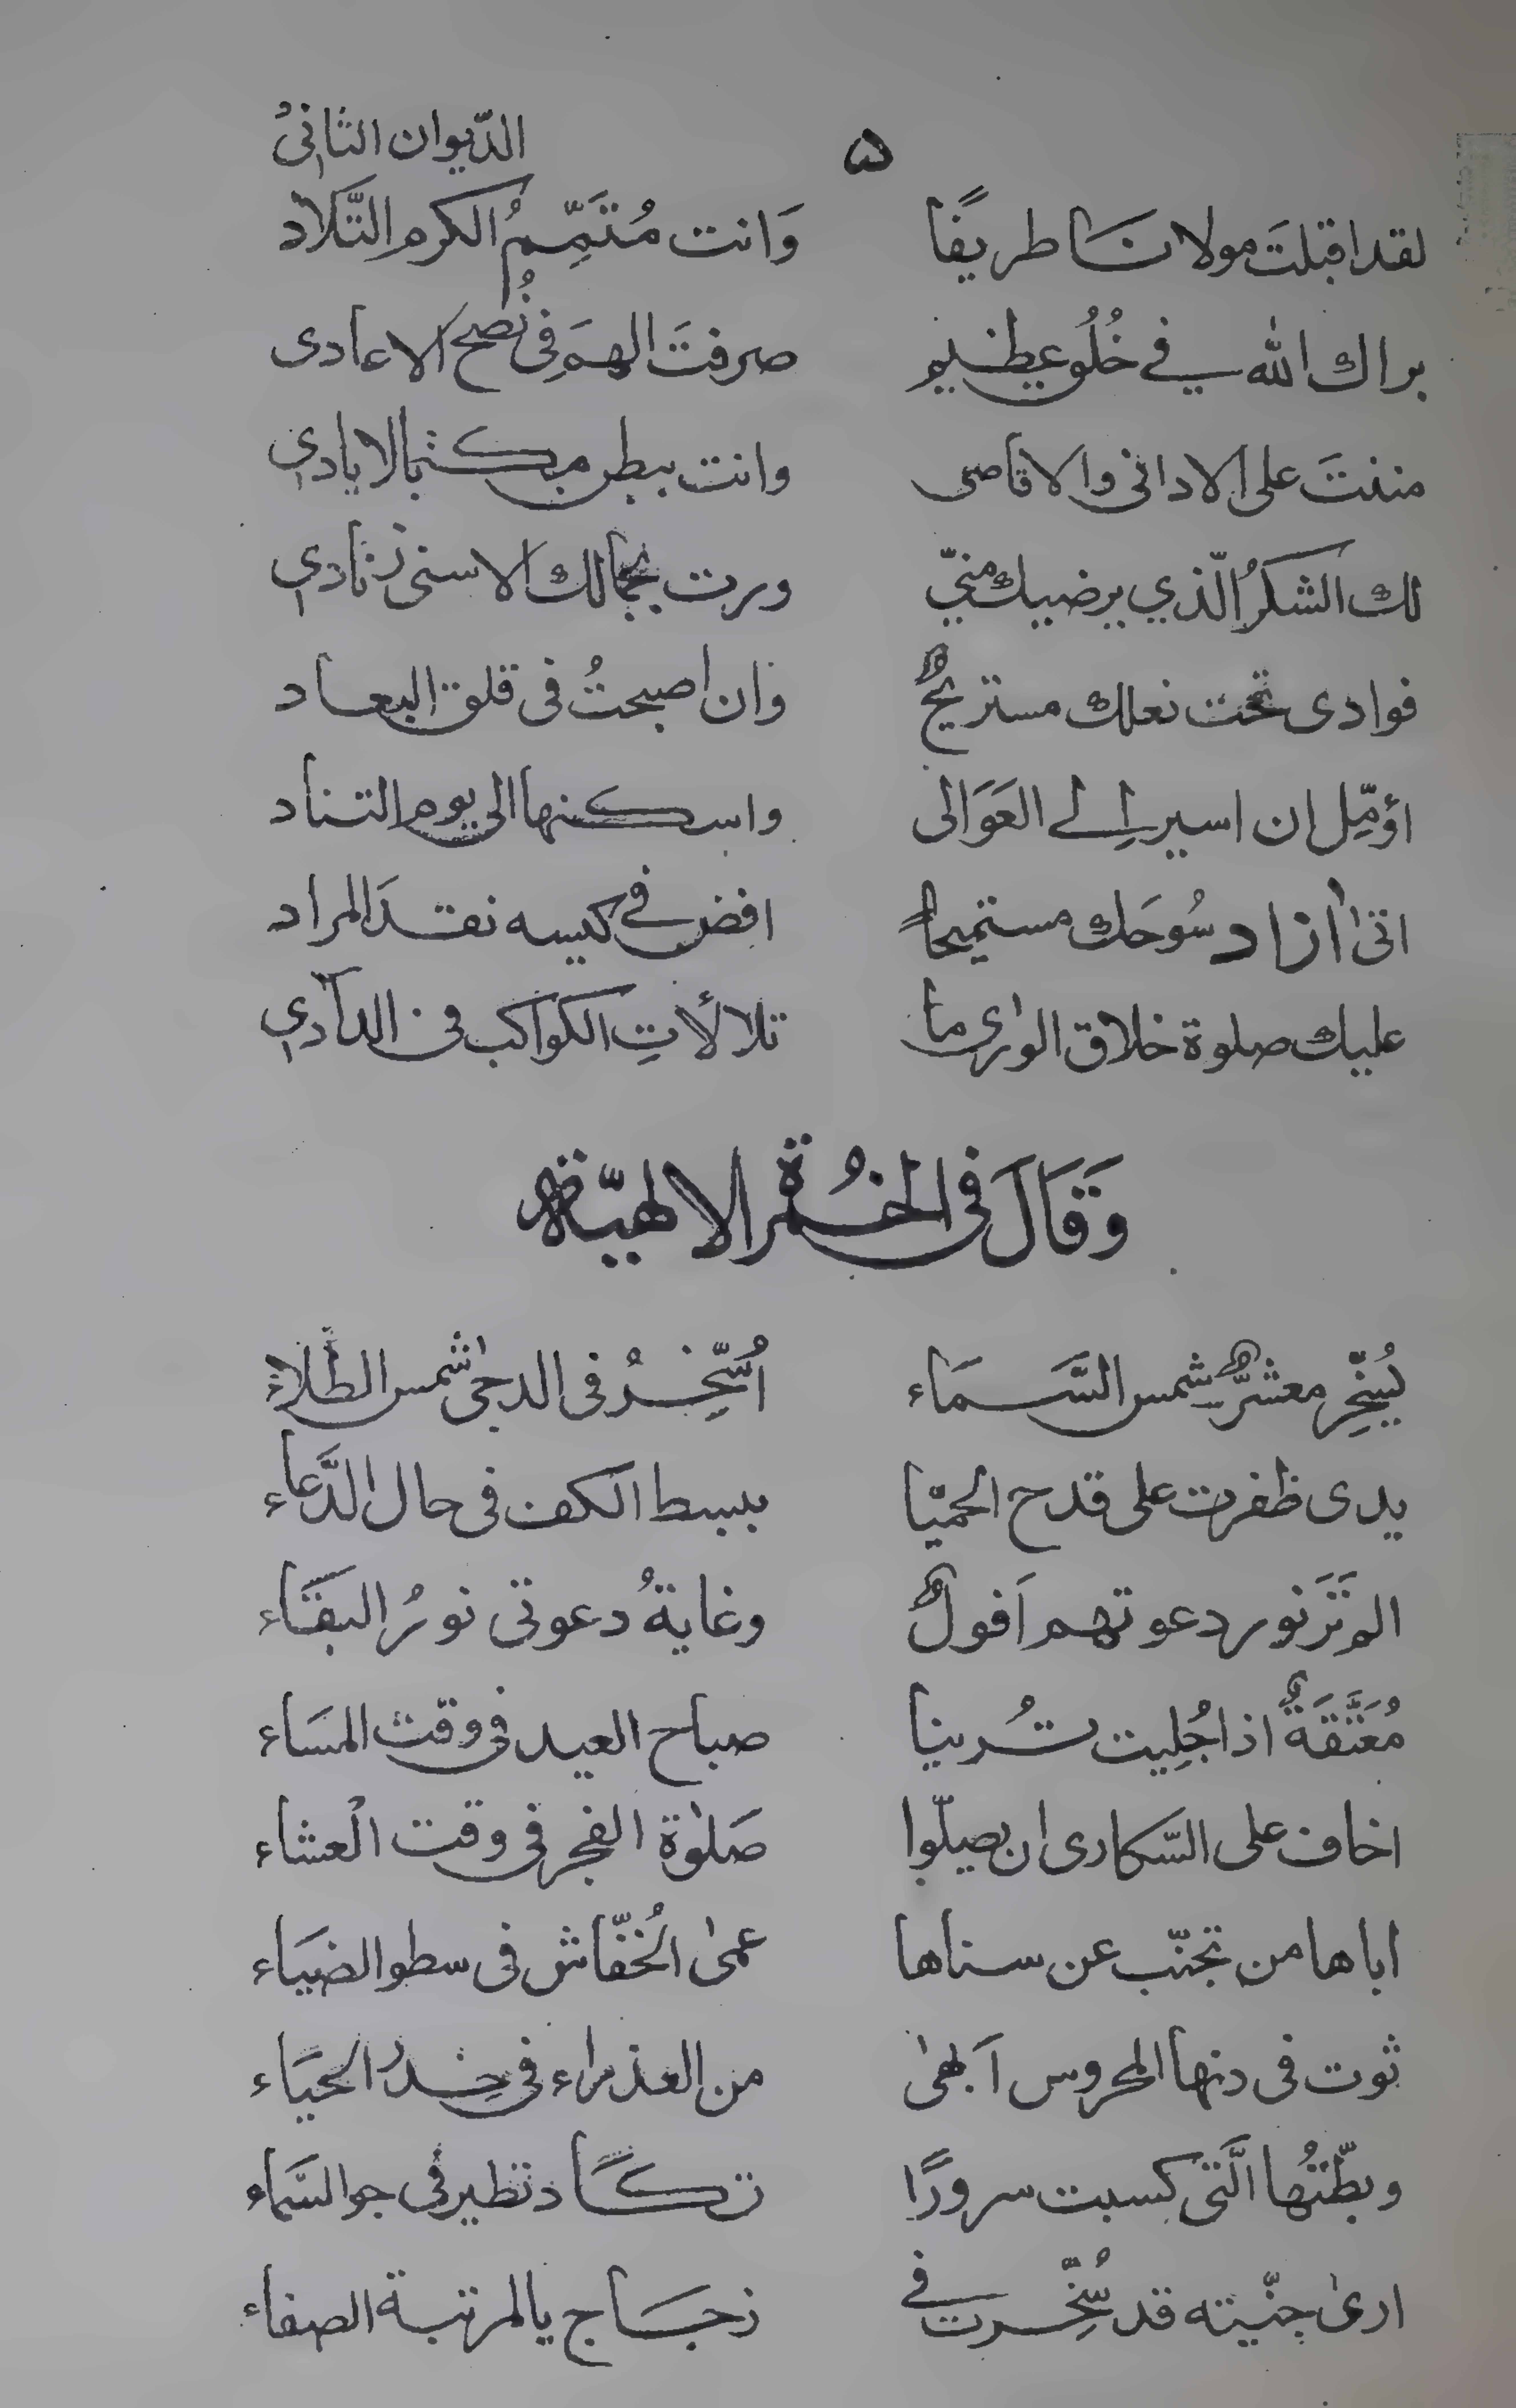 ٥ الدّيوان الثانى
لقد اقبلتَ مولانَا طريفًا وَانت مُتَمِّمُ الكرم التَّلاد
براك الله في خُلُو عظيم صرفتَ الهمَ فِى نُصح الاعادى
مننتَ على الادانى والاقاصى وانت ببطن مكة بالايادي
لك الشكرُ الّذي يرضيك منيّ ورت بجمالك الاسنى زنادي
فوادى تحت نعلك مستريحٌ وان اصبحتُ فى قلق البعاد
اؤمِّل ان اسير اِلے العَوَالى واسكنها الى يوم التناد
اتىٰ ازاد سُوحَك مستميحاً افض في كيسه نقدَ المراد
عليك صلوة خلاق الورىٰ ما تلالأتِ الكواكب فى الدآدي
وَقَالَ فى الخمُرة الالهيّة
يُسَخِّر معشرٌ شمس السَّمَاء اُسَّخِّرُ فى الدجىٰ شمس الطّلاء
يدى ظفرت على قدح الحميّا ببسط الكف فى حال الدَّعاء
الم تَرَ نور دعوتهم اَفولٌ وغايةُ دعوتى نورُ البقَاء
مُعَتَّقَةٌ اذا جُلِيت تُرينا صباح العيد فى وقت المسَاء
اخاف على السّكارى ان يصيلّوا صَلوٰة الفجر فى وقت الْعشاء
اباها من تجنّب عن سناها عمىٰ الخُفّاش فى سطو الضيَاء
ثوت فى دنها المحروس اَبهىٰ من العذراء فى خِدرُ الحيَاء
وبطّتُها الَّتى كسبت سرورًا تكَاد تطير فى جو السَّماء
ارىٰ جنّيته قد سُخِّرت في زجَاج يالمرتبة الصفاء